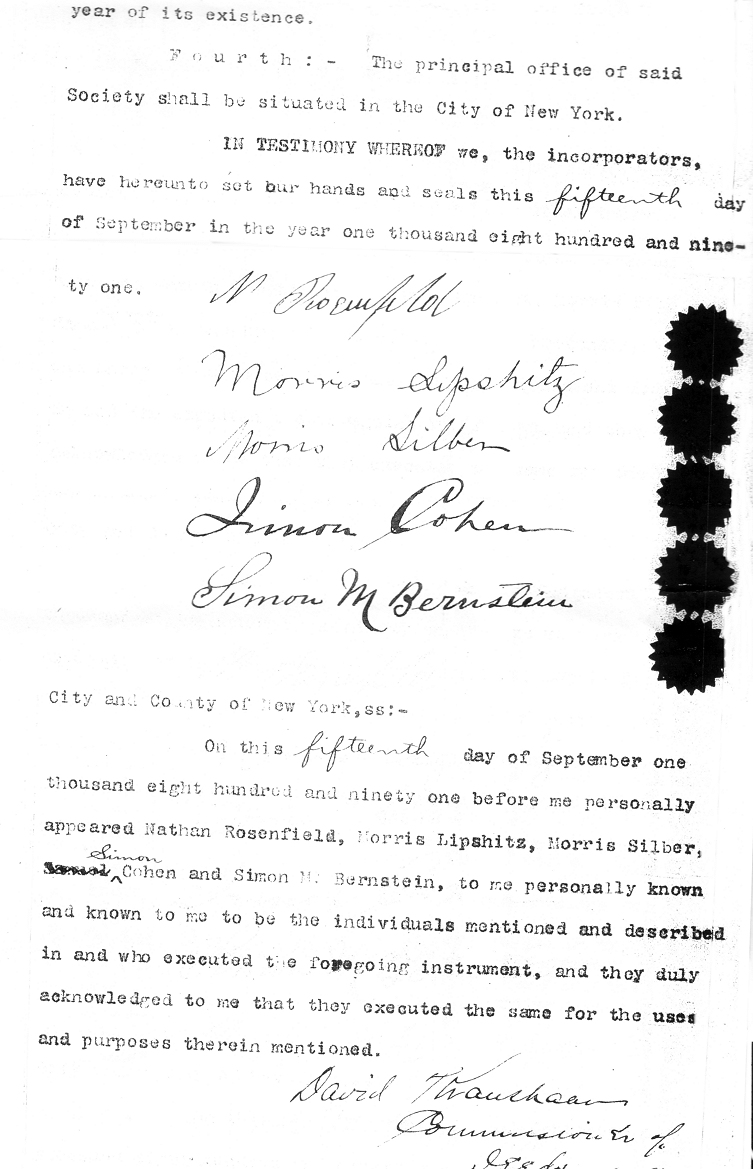 year of its existence.
Fourth:- The principal office of said
Society shall be situated in the City of New York.
IN TESTIMONY WHEREOF we, the incorporators,
have hereunto set our hands and seals this fifteenth day
of September in the year one thousand eight hundred and nine-
ty one.
N Rosenfeld
Morris Lipshitz
Morris Silber
Simon Cohen
Simon M Bernstein
City and County of New York,ss:-
On this fifteenth day of September one
thousand eight hundred and ninety one before me personally
appeared Nathan Rosenfield, Morris Lipshitz, Morris Silber,
Simon
Cohen and Simon M. Bernstein, to me personally known
and known to me to be the individuals mentioned and described
in and who executed the foregoing instrument, and they duly
acknowledged to me that they executed the same for the uses
and purposes therein mentioned.
David
Commissioner of
Deeds